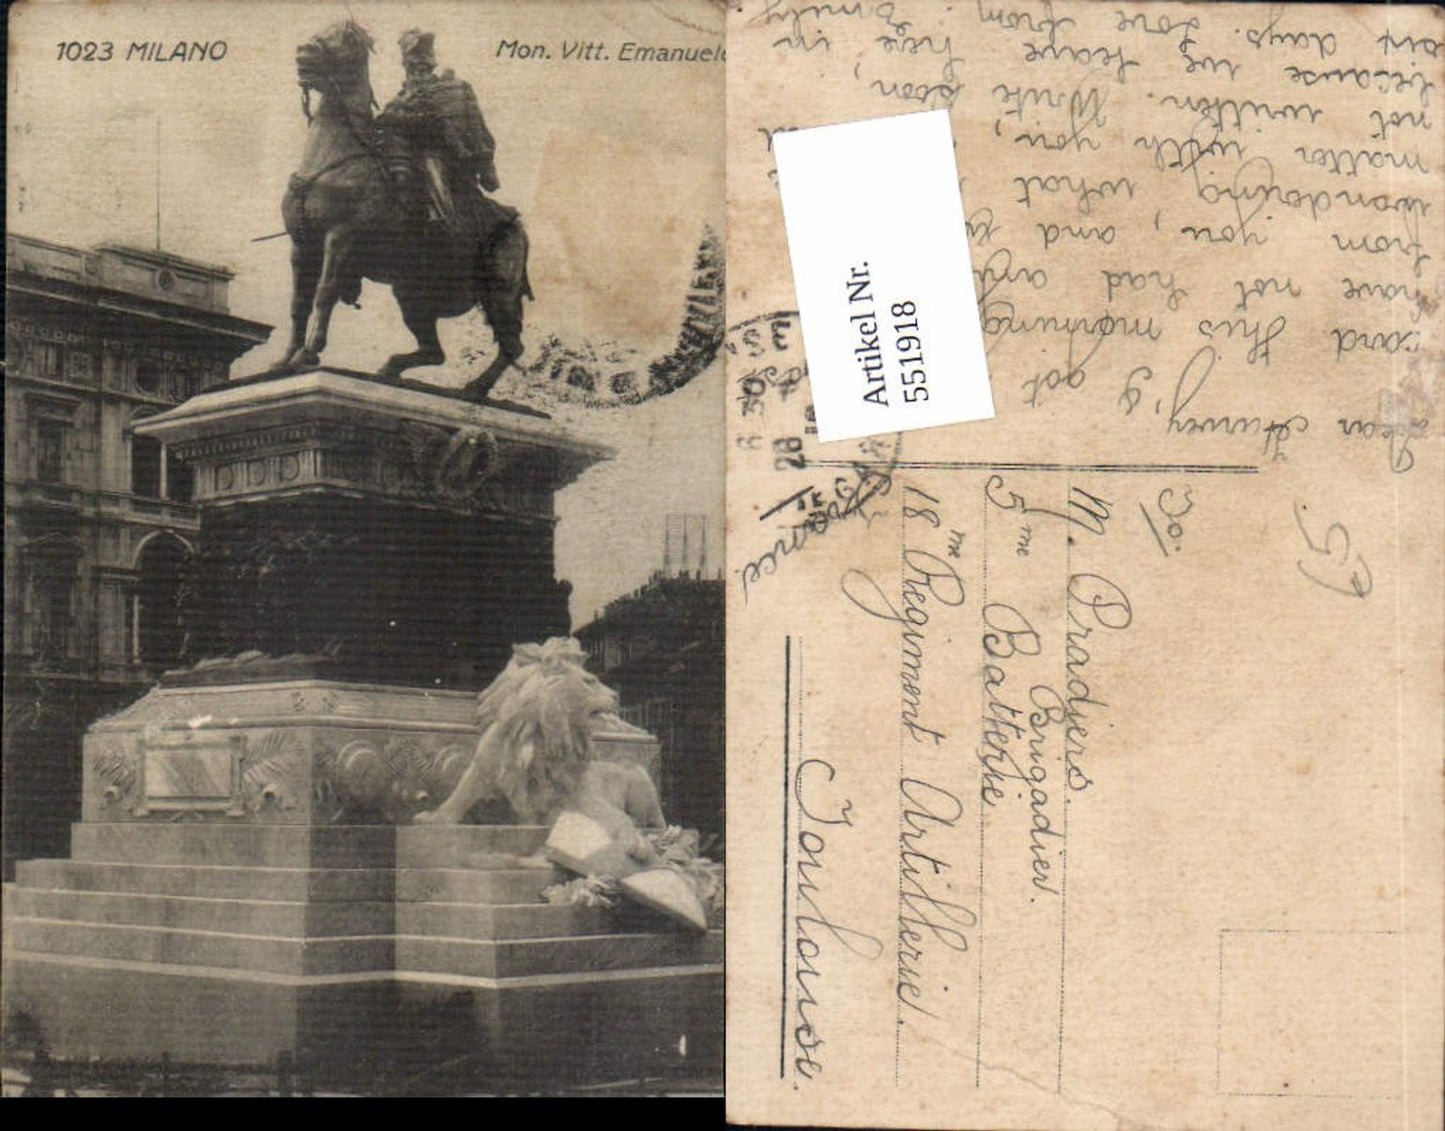 1023 MILANO
Mon. Vitt. Emanuele
Artikel Nr.
551918
Dear Harvey, I got
card this morning and
have not had any
from you, and
wondering what
matter with you,
not written. Write soon,
because we leave here in
six days. Love from Emily
To.
M. Pradiers.
Brigadier.
5me Batterie
18me Regiment Artillerie.
Toulouse.
France.
6 30 S
28